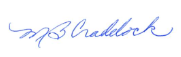 MB Craddock